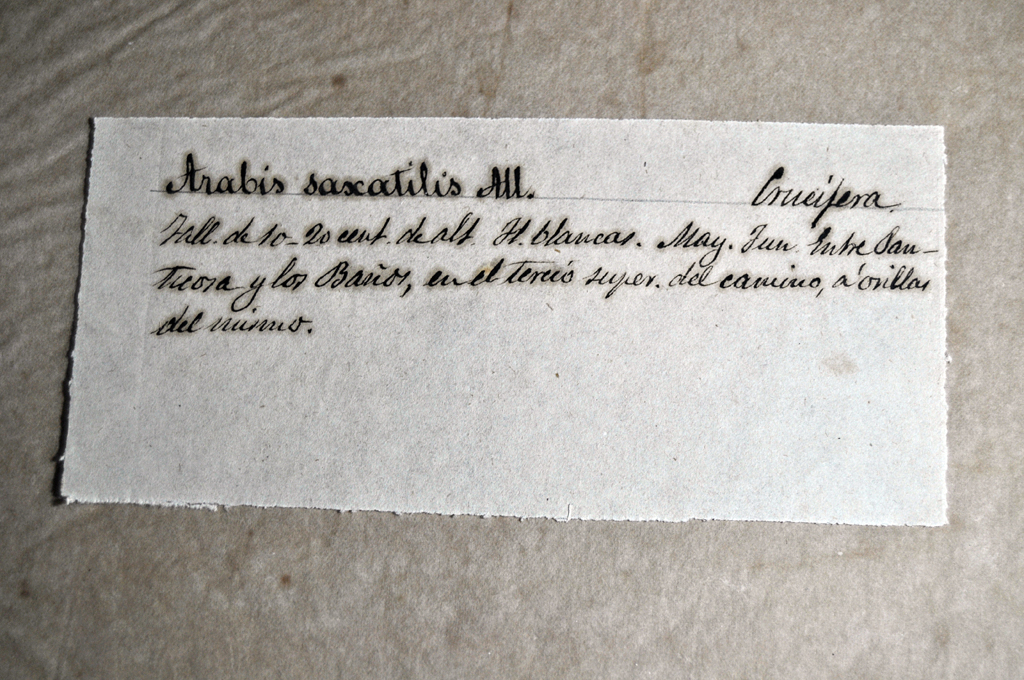 Arabis saxatilis All. Crucífera.
Tall. de 10-20 cent. de alt. Fl. blancas. May. Jun. Entre Pan-
ticosa y los Baños, en el tercio super. del camino, á orillas
del mismo.